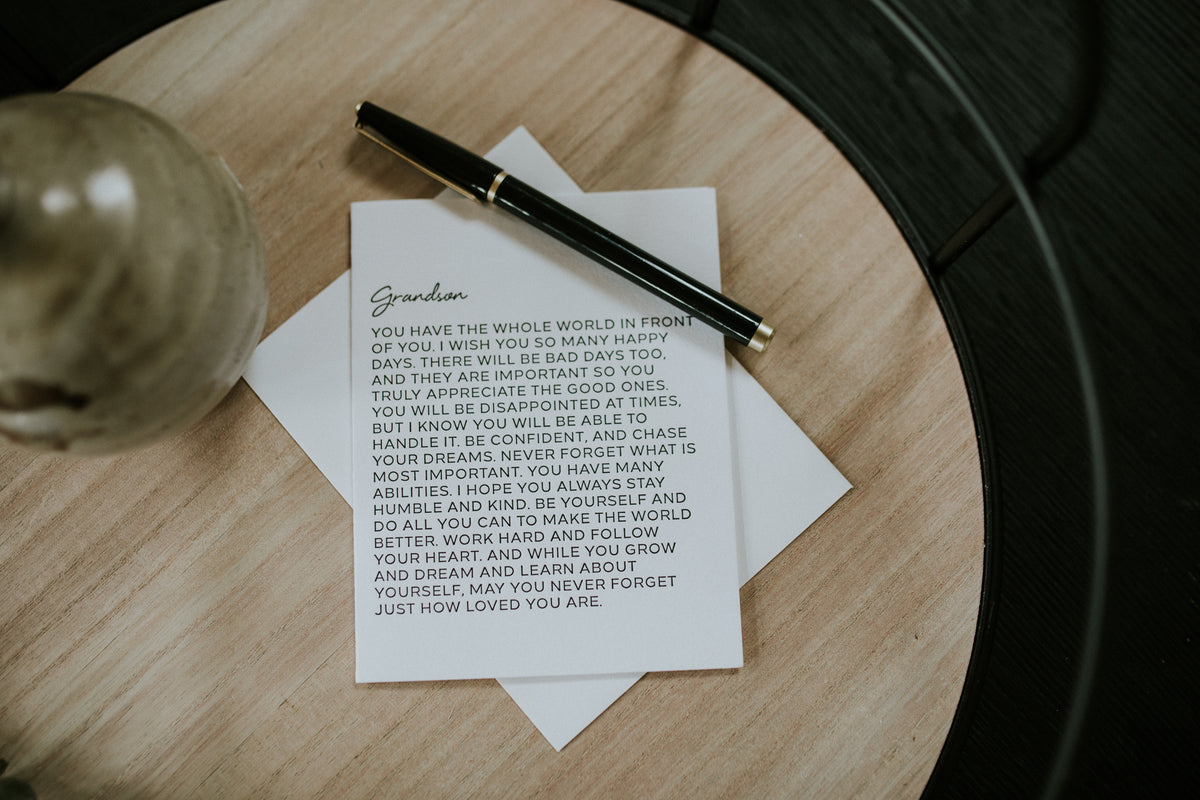 Grandson
YOU HAVE THE WHOLE WORLD IN FRONT
OF YOU. I WISH YOU SO MANY HAPPY
DAYS. THERE WILL BE BAD DAYS TOO,
AND THEY ARE IMPORTANT SO YOU
TRULY APPRECIATE THE GOOD ONES.
YOU WILL BE DISAPPOINTED AT TIMES,
BUT I KNOW YOU WILL BE ABLE TO
HANDLE IT. BE CONFIDENT, AND CHASE
YOUR DREAMS. NEVER FORGET WHAT IS
MOST IMPORTANT. YOU HAVE MANY
ABILITIES. I HOPE YOU ALWAYS STAY
HUMBLE AND KIND. BE YOURSELF AND
DO ALL YOU CAN TO MAKE THE WORLD
BETTER. WORK HARD AND FOLLOW
YOUR HEART. AND WHILE YOU GROW
AND DREAM AND LEARN ABOUT
YOURSELF, MAY YOU NEVER FORGET
JUST HOW LOVED YOU ARE.